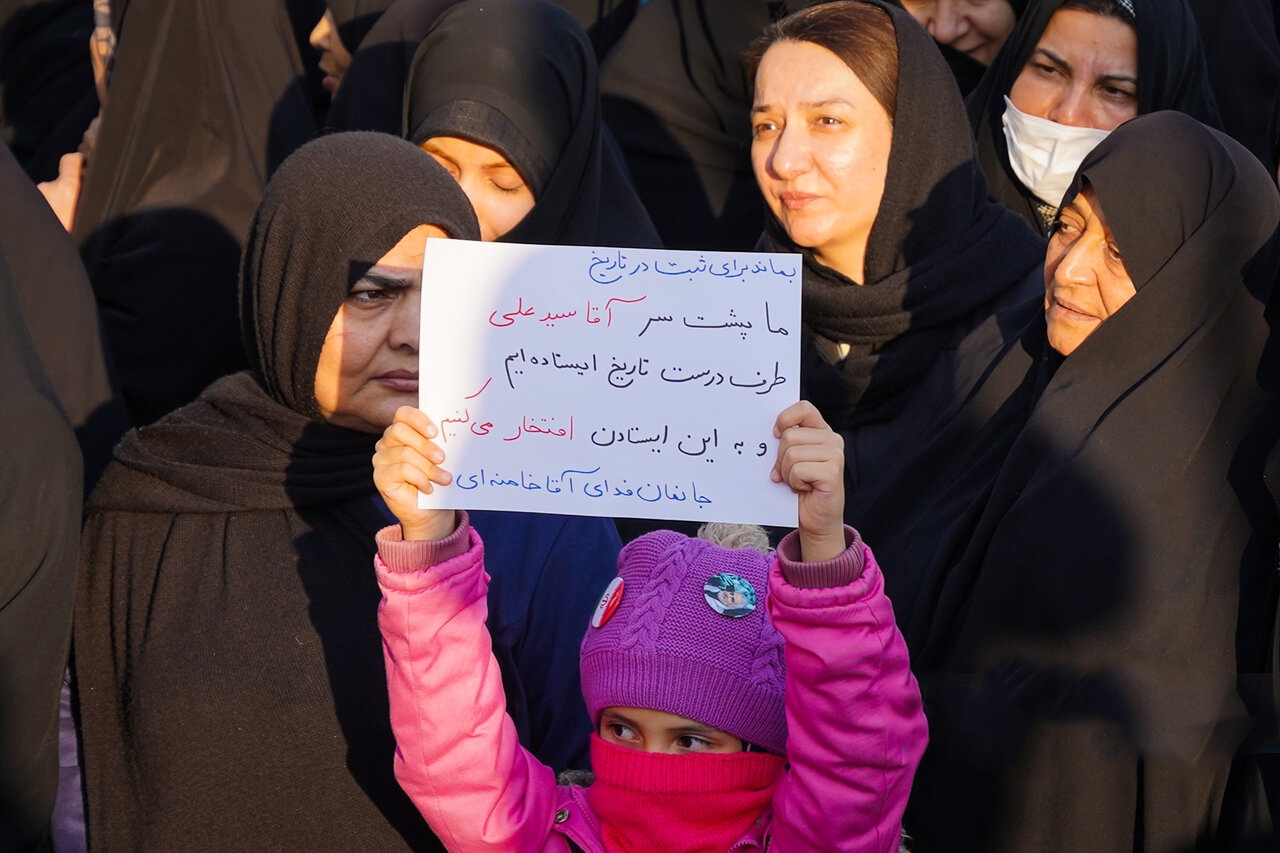 بماند برای ثبت در تاریخ
ما پشت سر آقا سید علی
طرف درست تاریخ ایستاده ایم
و به این ایستادن افتخار می‌کنیم
جانمان فدای آقا خامنه ای